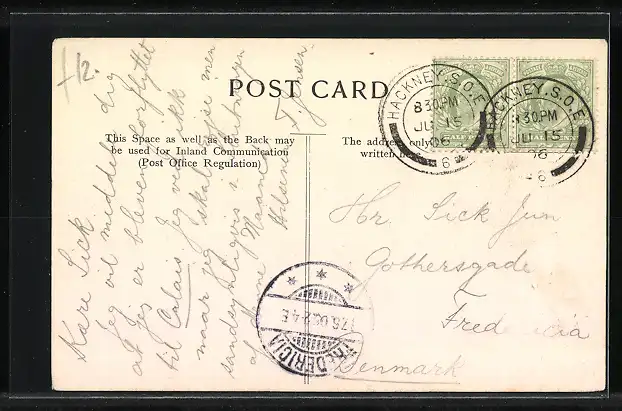 12.
POST CARD
This Space as well as the Back may
be used for Inland Communication
(Post Office Regulation)
The address only
written
HACKNEY. S.O.E
8 30PM
JU 15
06
6
HACKNEY. S.O.E
8 30PM
JU 15
06
6
Kære Sick
Jeg vil meddele dig
at Jeg er bleven forflyttet
til Calais Jeg veed ikk
naar jeg skal rejse men
sandsynligvis i Slutningen
af Maaned
Hilsen
T. Jensen
Hr. Sick Jun
Gothersgade
Fredericia
Denmark
FREDERICIA
17.6.06. 2-4 E